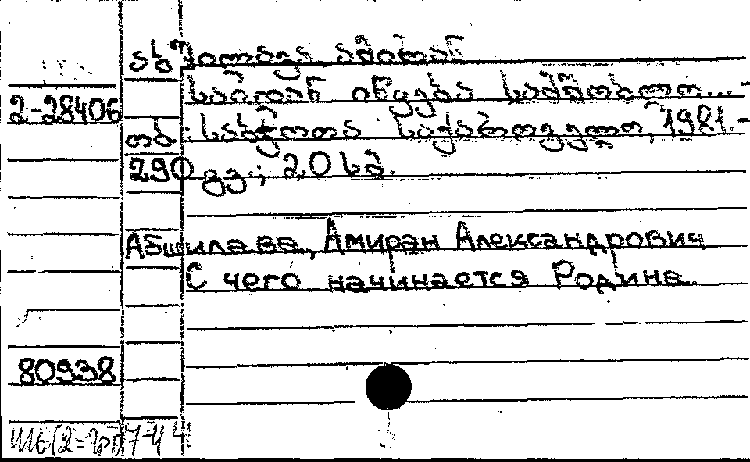 აბშილავა ამირან
საიდან იწყება სამშობლო... -
2-28406
თბ.: საბჭოთა საქართველო, 1981. -
290 გვ.; 20 სმ.
Абшилава, Амиран Александрович
С чего начинается Родина.
80938